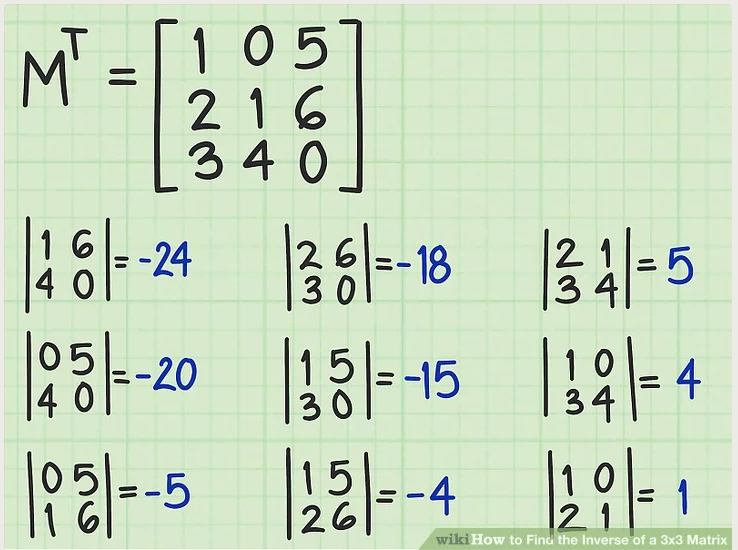 M^T = [1 0 5
2 1 6
3 4 0]
|1 6
4 0| = -24
|2 6
3 0| = -18
|2 1
3 4| = 5
|0 5
4 0| = -20
|1 5
3 0| = -15
|1 0
3 4| = 4
|0 5
1 6| = -5
|1 5
2 6| = -4
|1 0
2 1| = 1
wikiHow to Find the Inverse of a 3x3 Matrix